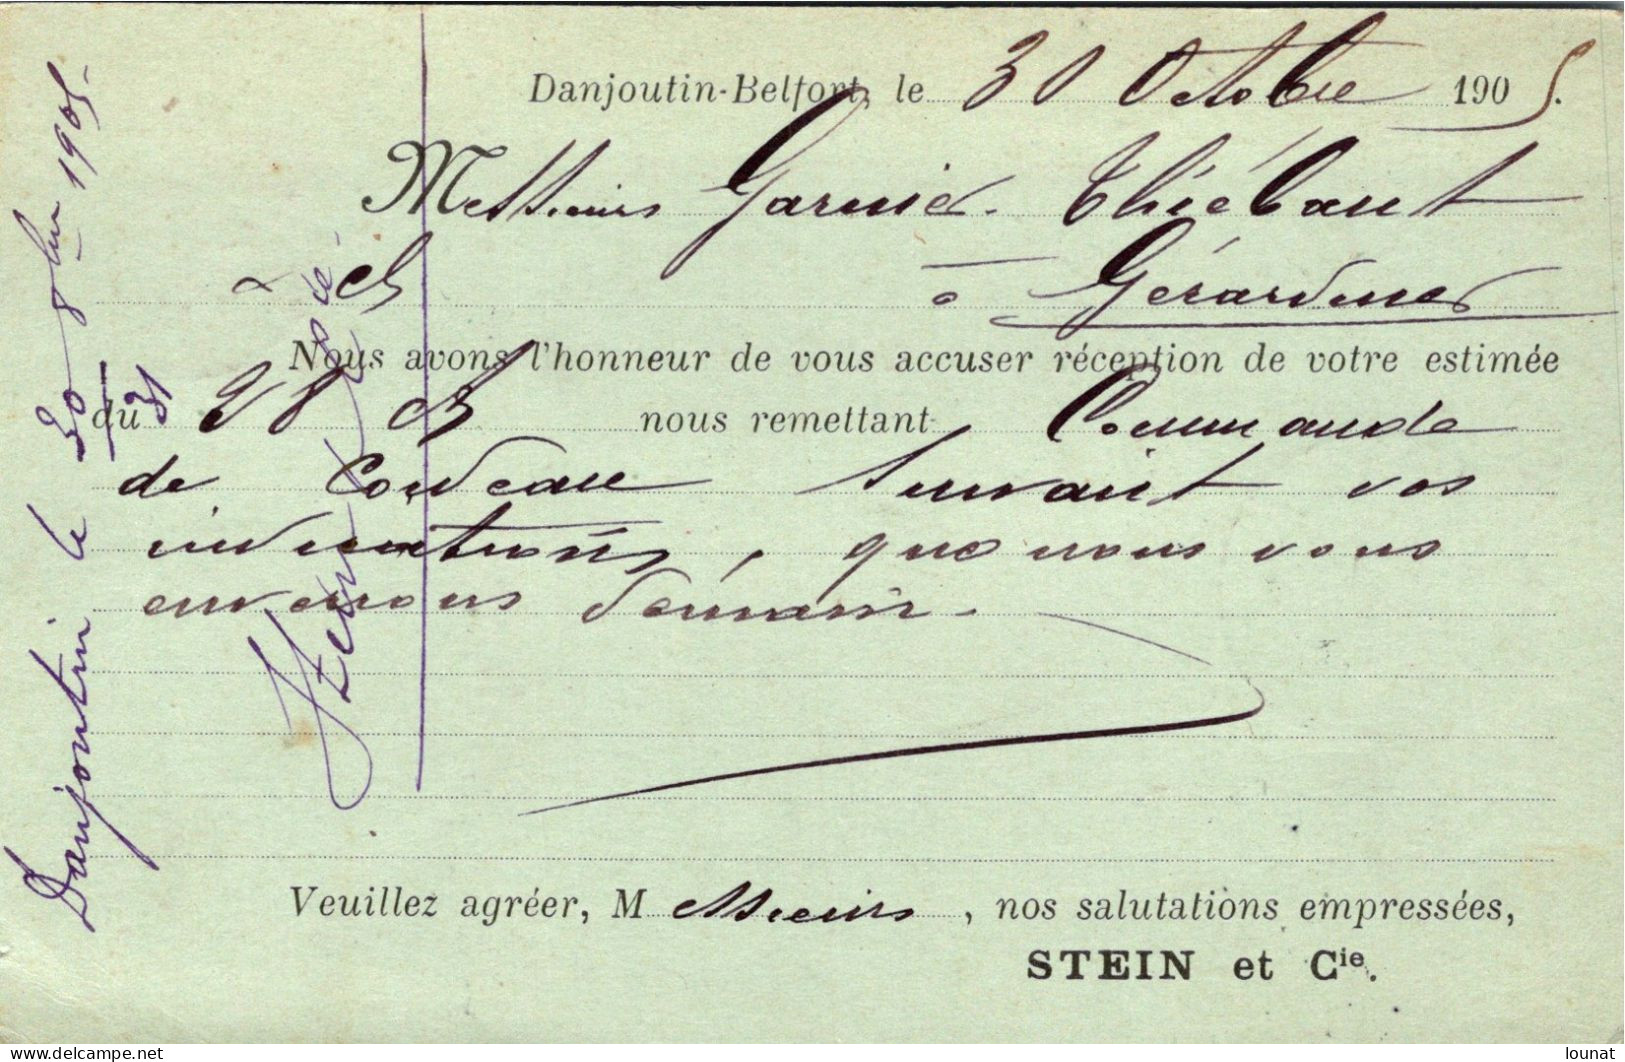 Danjoutin-Belfort, le 30 Octobre 1905.
Messieurs Garnier Thiébaut
& Cie
à Gérardmer
Nous avons l'honneur de vous accuser réception de votre estimée
du 28 ct nous remettant Commande
de Cordeau suivant vos
indications, que nous vous
enverrons demain.
Veuillez agréer, Messieurs, nos salutations empressées,
STEIN et Cie.
Danjoutin le 30 8bre 1905
31
Stein
delcampe.net
lounat